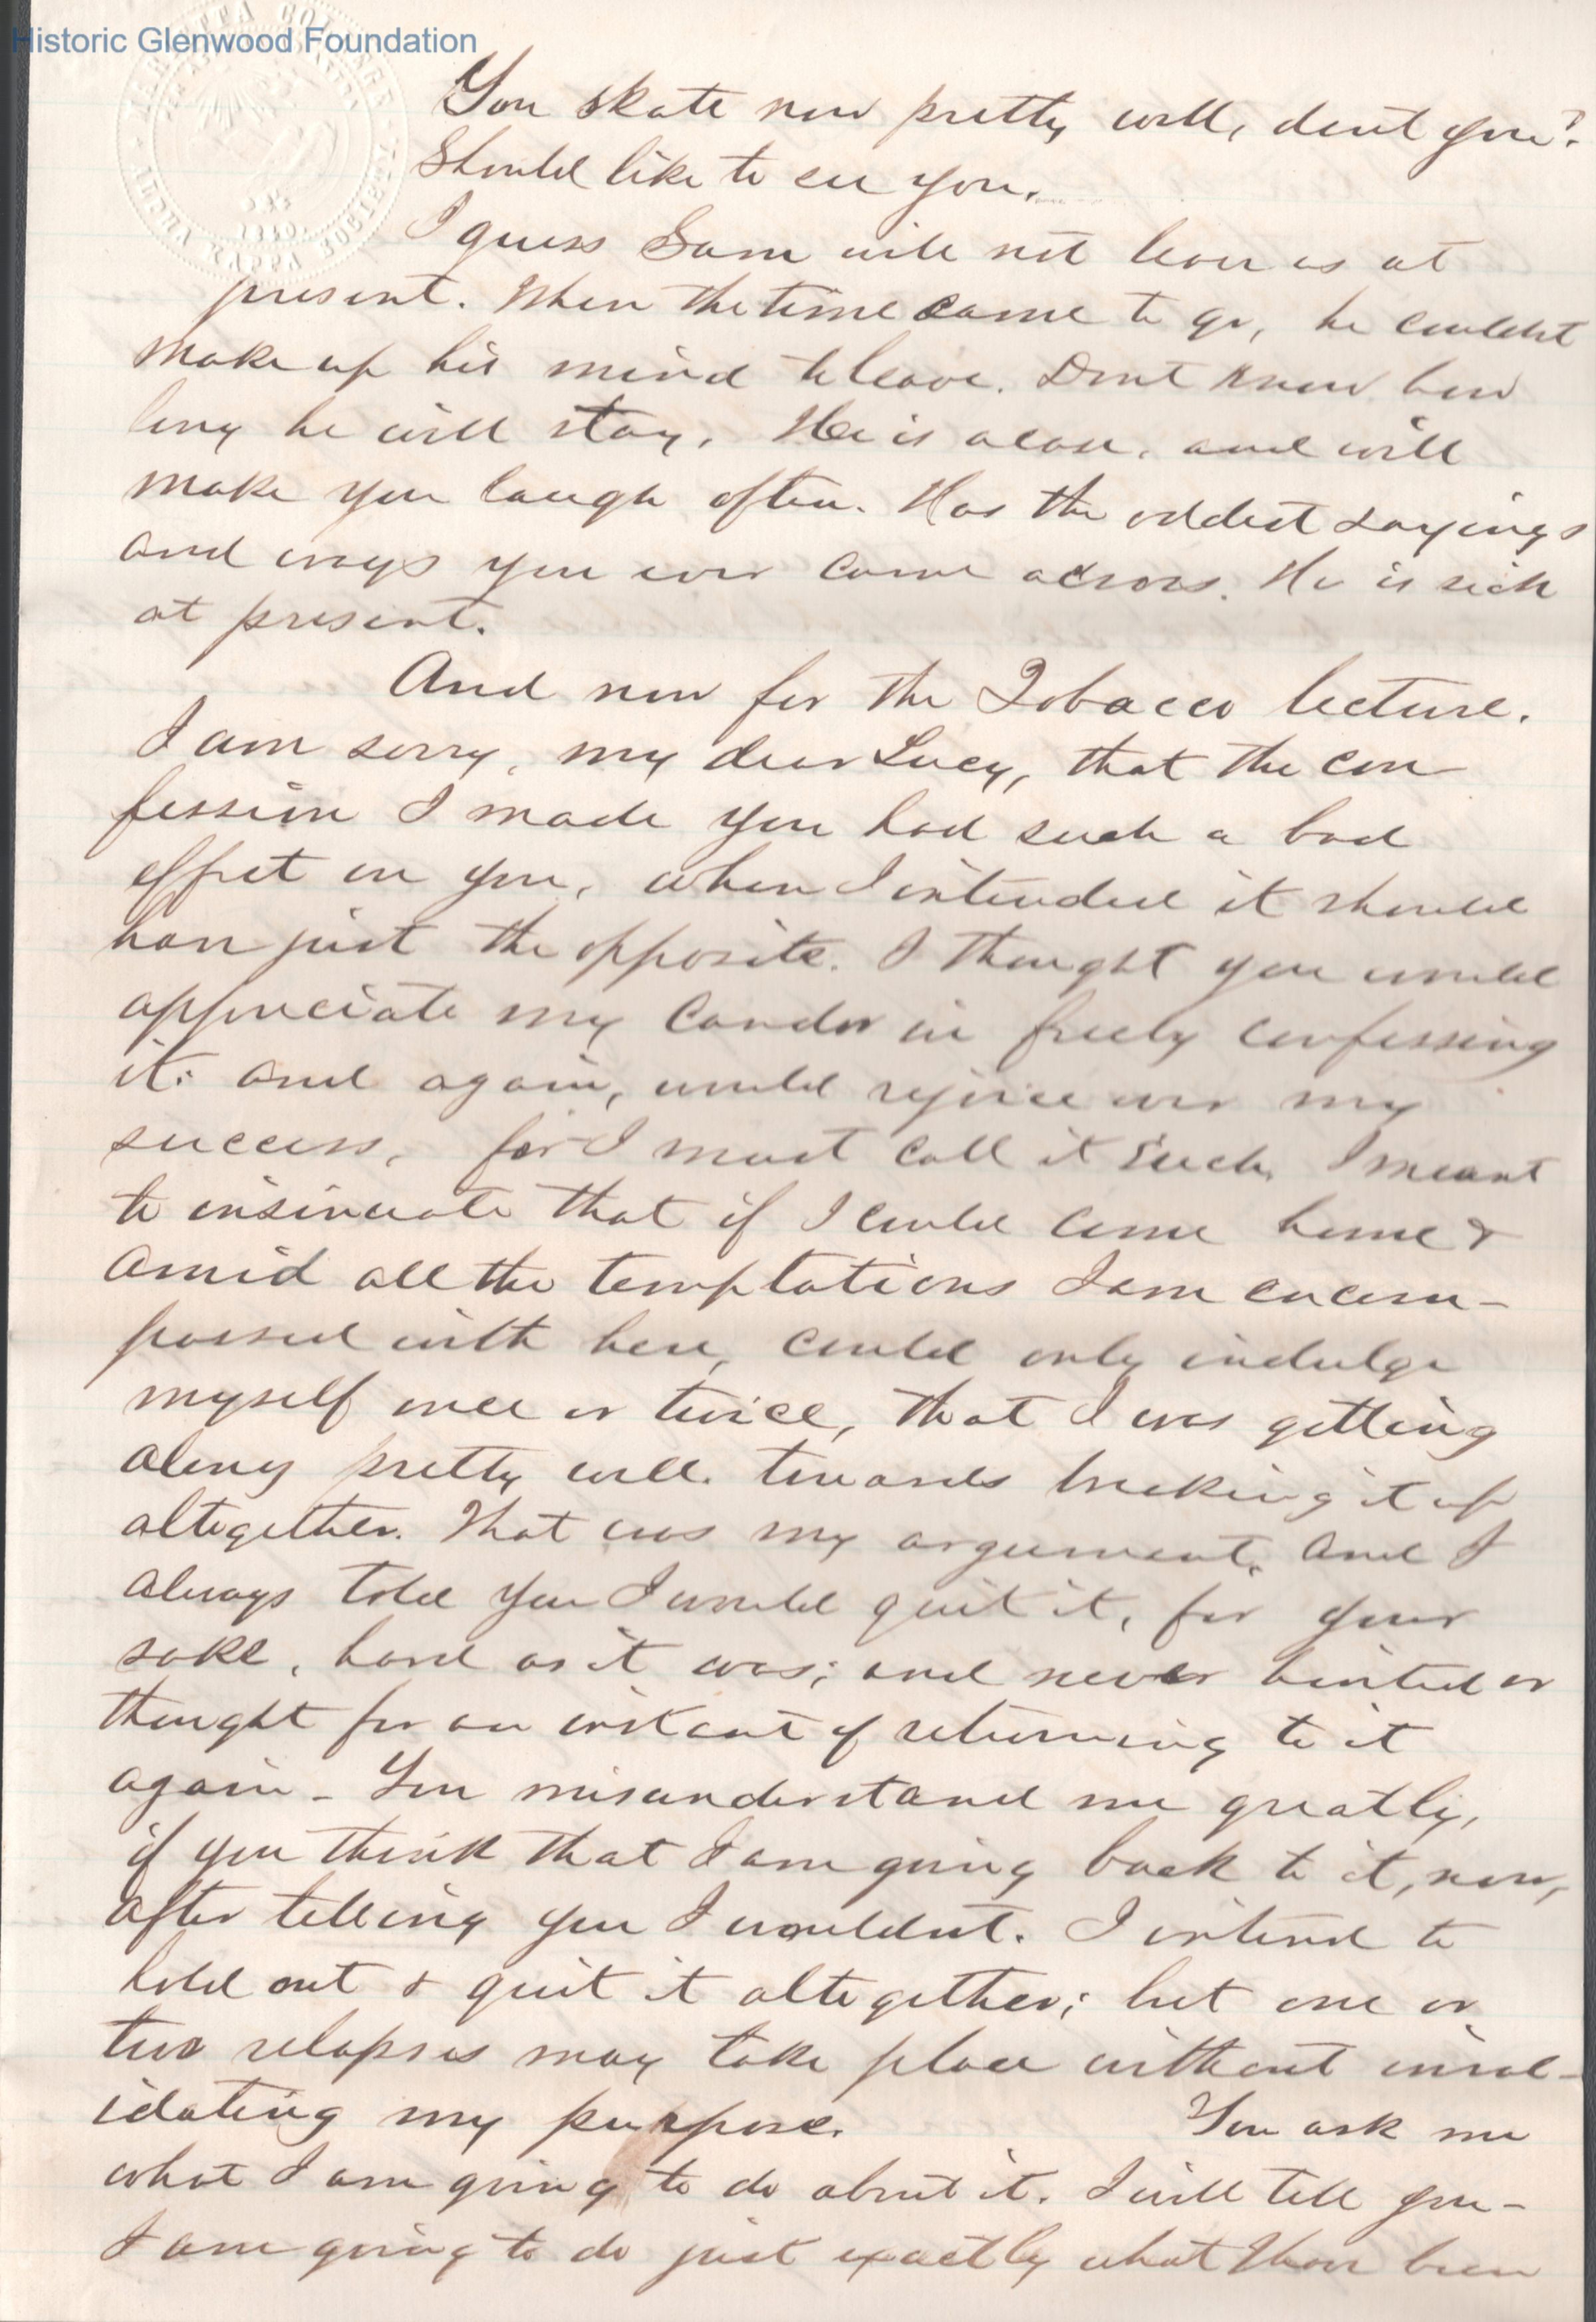 Historic Glenwood Foundation
MARIETTA COLLEGE
ALPHA KAPPA SOCIETY
You skate now pretty well, dont you?
Should like to see you.
I guess Sam will not leave us at
present. When the time came to go, he couldnt
make up his mind to leave. Dont know how
long he will stay. He is a case, and will
make you laugh often. Has the oddest sayings
and ways you ever came across. He is sick
at present.
And now for the Tobacco lecture.
I am sorry, my dear Lucy, that the con
fession I made you had such a bad
effect on you, when I intended it should
have just the opposite. I thought you would
appreciate my candor in freely confessing
it: and again, would rejoice over my
success, for I must call it such. I meant
to insinuate that if I could come home &
amid all the temptations I am encom-
passed with here, could only indulge
myself once or twice, that I was getting
along pretty well towards breaking it up
altogether. That was my argument. And I
always told you I would quit it, for your
sake, hard as it was; and never hinted or
thought for an instant of returning to it
again - You misunderstand me greatly,
if you think that I am going back to it, now,
after telling you I wouldnt. I intend to
hold out & quit it altogether; but one or
two relapses may take place without inval-
idating my purpose. You ask me
what I am going to do about it. I will tell you -
I am going to do just exactly what I have been